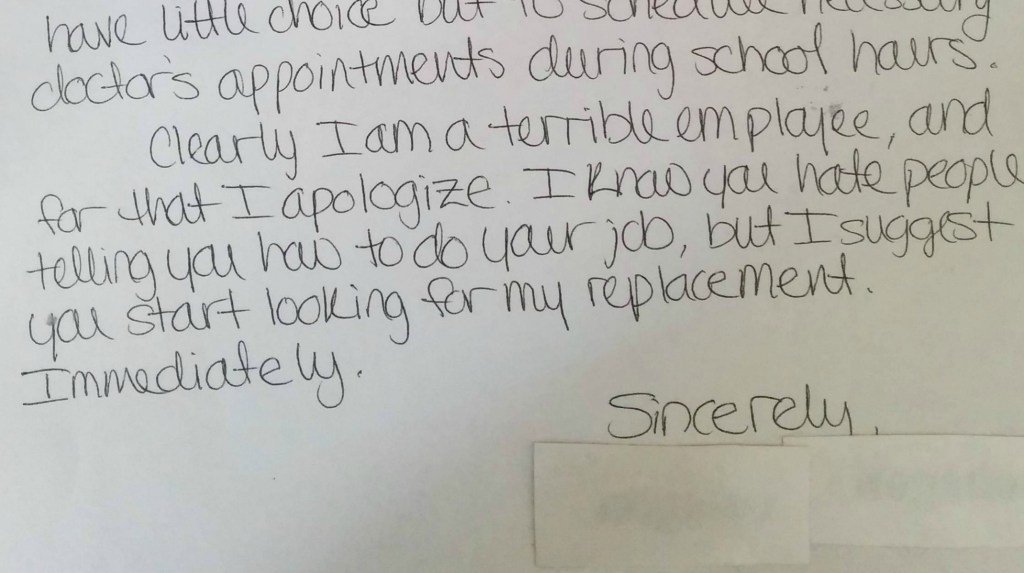 have little choice but to schedule necessary
doctor's appointments during school hours.
Clearly I am a terrible employee, and
for that I apologize. I know you hate people
telling you how to do your job, but I suggest
you start looking for my replacement.
Immediately.
Sincerely,